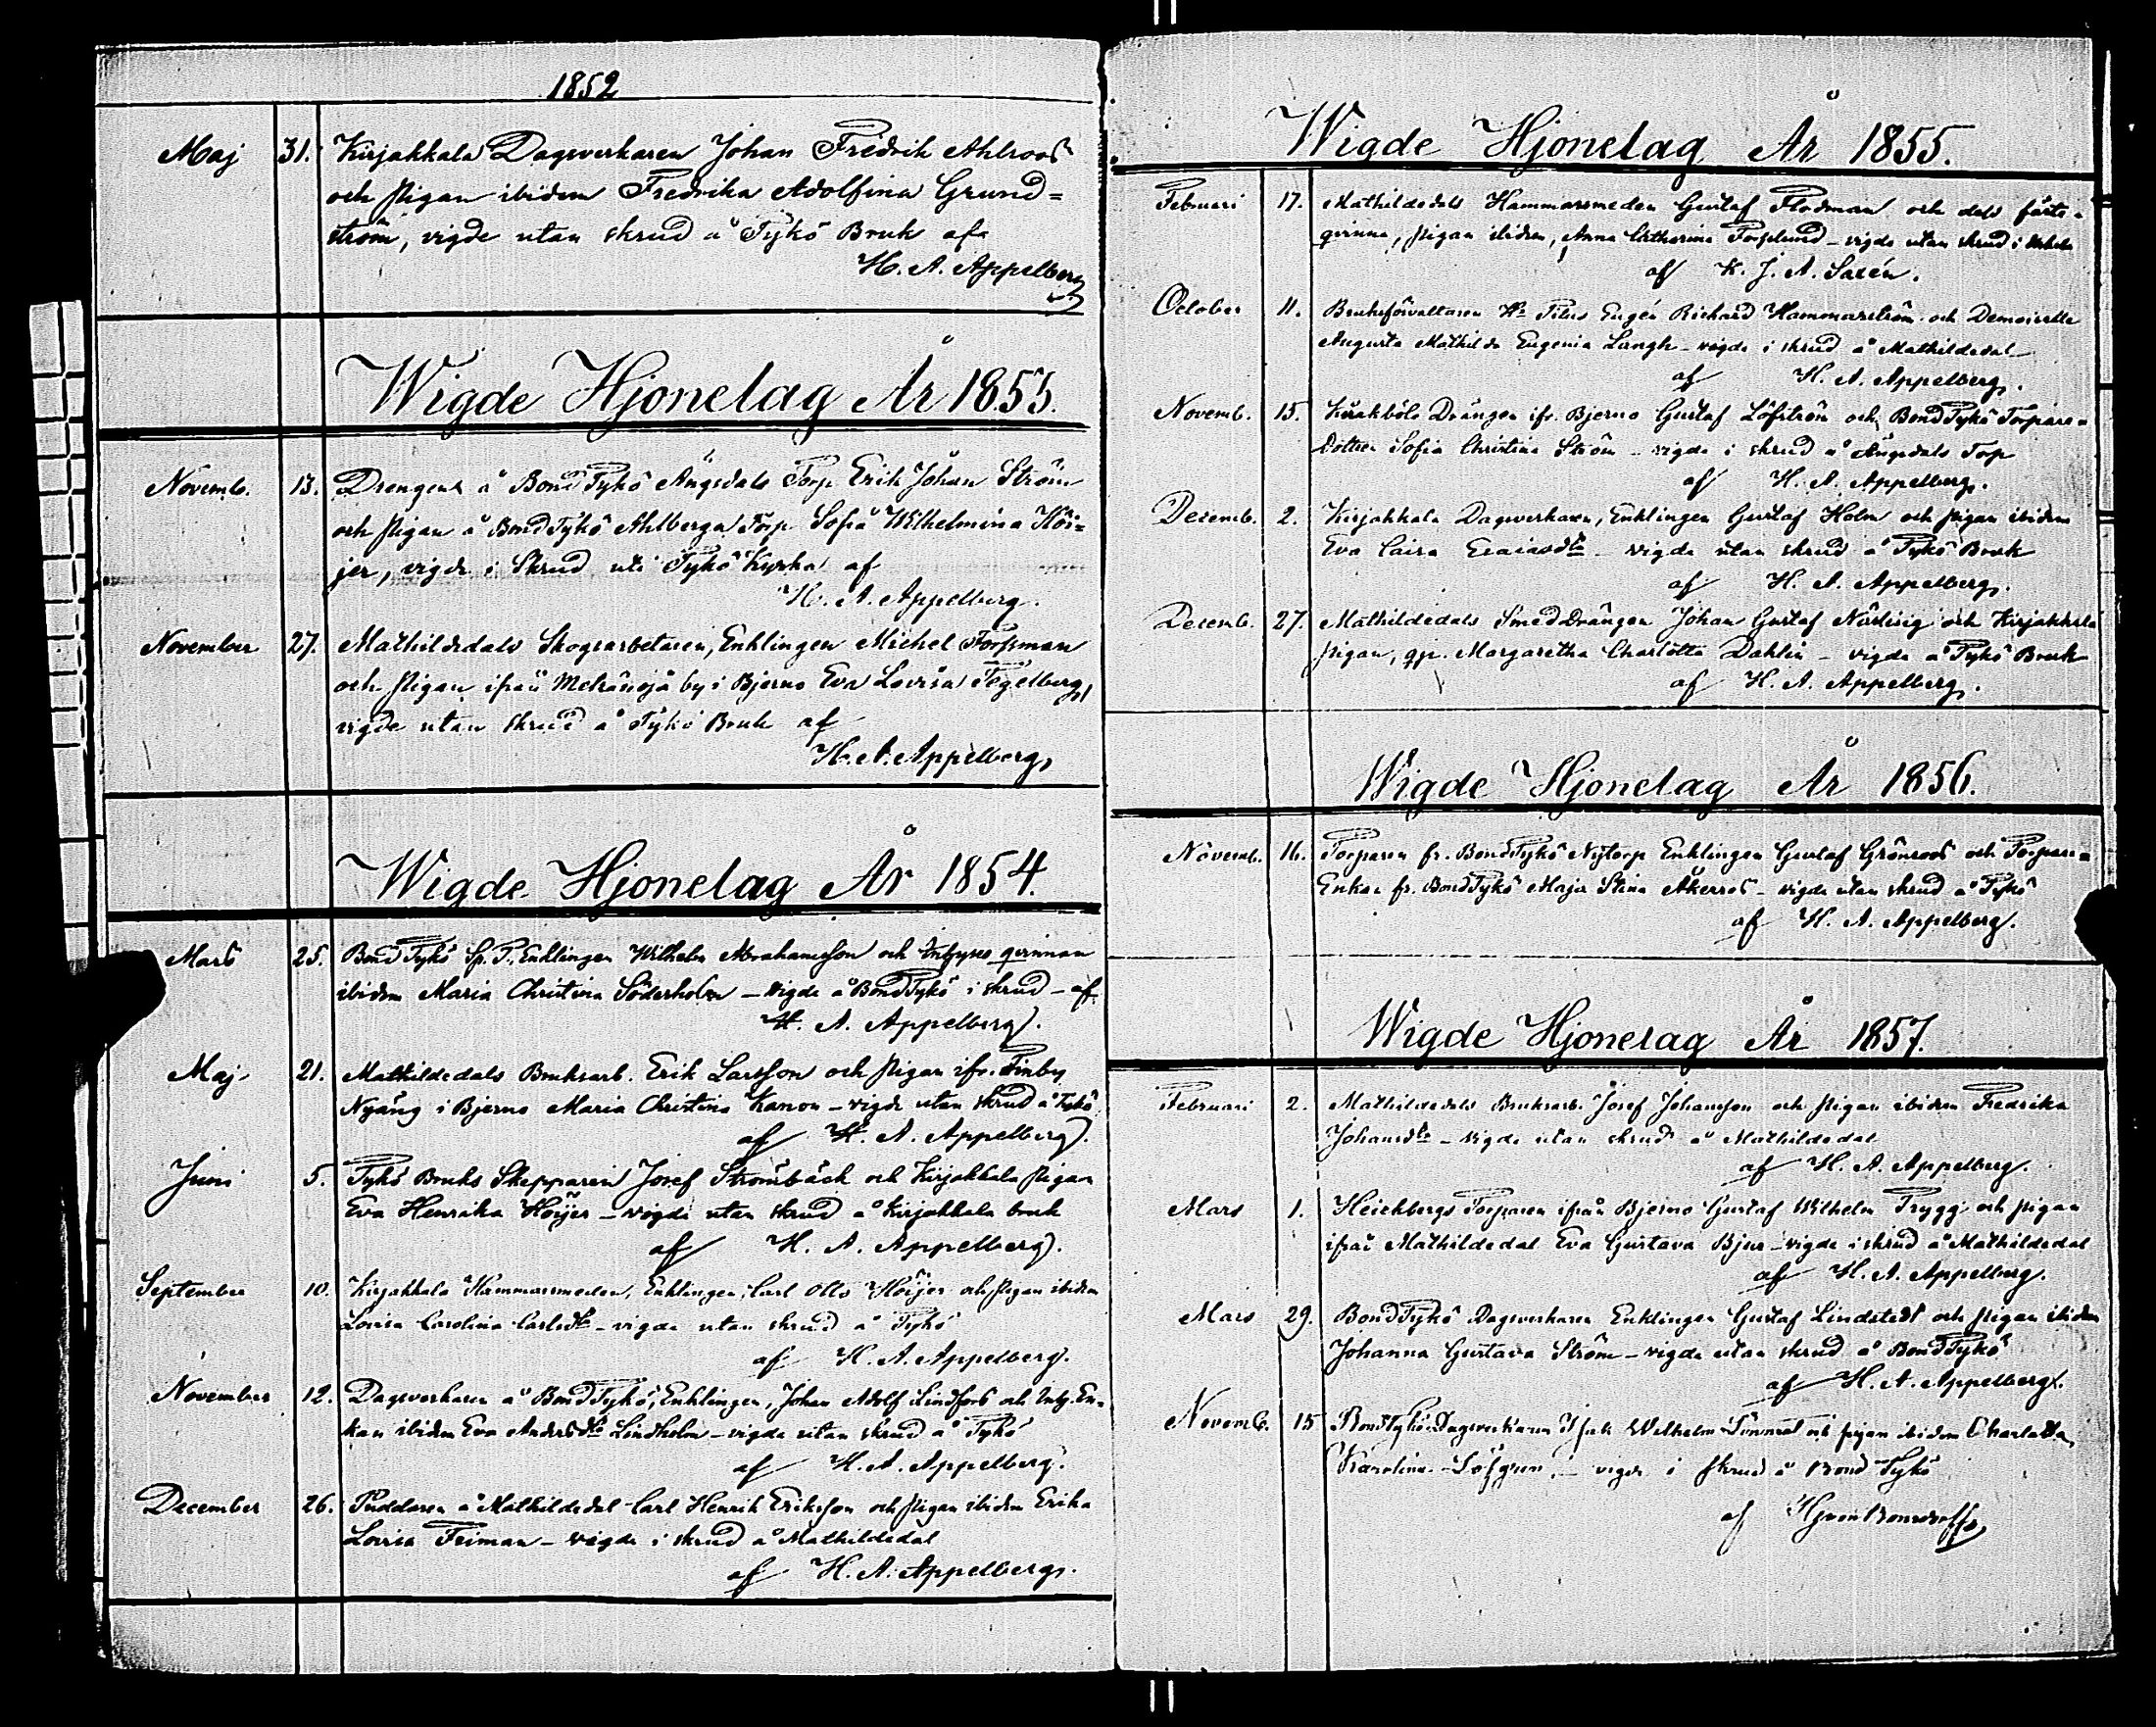 1852
Maj 31. Kirjakkala Dagsverkaren Johan Fredrik Ahlroos
och pigan ibidem Fredrika Adolfina Grund=
ström, vigde utan skrud å Tykö Bruk af
H. A. Appelberg
Wigde Hjonelag År 1853.
Novemb. 13. Drengen å BondTykö Ängsdals Torp Erik Johan Ström
och pigan å BondTykö Ahlberga Torp Sofia Wilhelmina Höi=
jer, vigde i Skrud uti Tykö Kyrka af
H. A. Appelberg.
November 27. Mathildedals Skogsarbetaren, Enklingen Michel Forsman
och pigan ifrån by i Bjerno Eva Lovisa Tegelberg,
vigde utan skrud å Tykö Bruk af
H. A. Appelberg,
Wigde Hjonelag År 1854.
Mars 25. BondTykö Sp. T. Enklingen Wilhelm Abrahamsson och Inhyses qvinnan
ibidem Maria Christina Söderholm – vigde å BondTykö i skrud – af
H. A. Appelberg.
Maj 21. Mathildedals Bruksarb. Erik Larsson och pigan ifr. Finby
Nyäng i Bjerno Maria Christina Kanon – vigde utan skrud å Tykö
af H. A. Appelberg.
Juni 5. Tykö Bruks Skepparen Josef Strömbäck och Kirjakkala pigan
Eva Henrika Höijer – vigde utan skrud å Kirjakkala bruk
af H. A. Appelberg.
September 10. Kirjakkala Hammarsmeden, Enklingen, Carl Otto Höijer och pigan ibidem
Lovisa Carolina Carlsdtr – vigde utan skrud å Tykö
af H. A. Appelberg.
November 12. Dagsverkaren å BondTykö, Enklingen, Johan Adolf Lindfors och Inhy. En=
kan ibidem Eva Andersdtr Lindholm – vigde utan skrud å Tykö
af H. A. Appelberg.
December 26. Puddaren å Mathildedal Carl Henrik Eriksson och pigan ibidem Erika
Lovisa Feiman – vigde i skrud å Mathildedal
af H. A. Appelberg.
Wigde Hjonelag År 1855.
Februari 17. Mathildedals Hammarsmeden Gustaf Flodman och dess fäste=
qvinna, pigan ibidem, Anna Catharina Forslund – vigde utan skrud i
af K. J. A. Sacén.
October 11. Bruksförvaltaren Hr Titus Eugén Richard Hammarström och Demoiselle
Augusta Mathilda Eugenia Langh – vigde i skrud å Mathildedal
af H. A. Appelberg.
Novemb. 15. Drängen ifr. Bjerno Gustaf Löfström och BondTykö Torpare=
dotter Sofia Christina Ström – vigde i skrud å Ängsdals Torp
af H. A. Appelberg.
Decemb. 2. Kirjakkala Dagsverkaren, Enklingen Gustaf Holm och pigan ibidem
Eva Caisa Esaiasdtr – vigde utan skrud å Tykö Bruk
af H. A. Appelberg.
Decemb. 27. Mathildedals SmedDrängen Johan Gustaf Nörling och Kirjakkala
pigan, qp. Margaretha Charlotta Dahlin – vigde å Tykö Bruk
af H. A. Appelberg.
Wigde Hjonelag År 1856.
Novemb. 16. Torparen fr. BondTykö Nytorp Enklingen Gustaf Grönroos och Torpare=
Enkan fr. BondTykö Maja Stina Åkerros – vigde utan skrud å Tykö
af H. A. Appelberg.
Wigde Hjonelag År 1857.
Februari 2. Mathildedals Bruksarb. Josef Johansson och pigan ibidem Fredrika
Johansdtr – vigde utan skrud å Mathildedal
af H. A. Appelberg.
Mars 1. Heickbergs Torparen ifrån Bjerno Gustaf Wilhelm Trygg och pigan
ifrån Mathildedal Eva Gustava Bjur – vigde i skrud å Mathildedal
af H. A. Appelberg.
Mars 29. BondTykö Dagsverkaren Enklingen Gustaf Lindstedt och pigan ibidem
Johanna Gustava Ström – vigde utan skrud å BondTykö
af H. A. Appelberg.
Novemb. 15 BondTykö Dagsverkaren Isak Wilhelm och pigan ibidem Charlotta
Karolina Löfgren, – vigde i skrud å Bond Tykö
af Hj von Bonsdorff